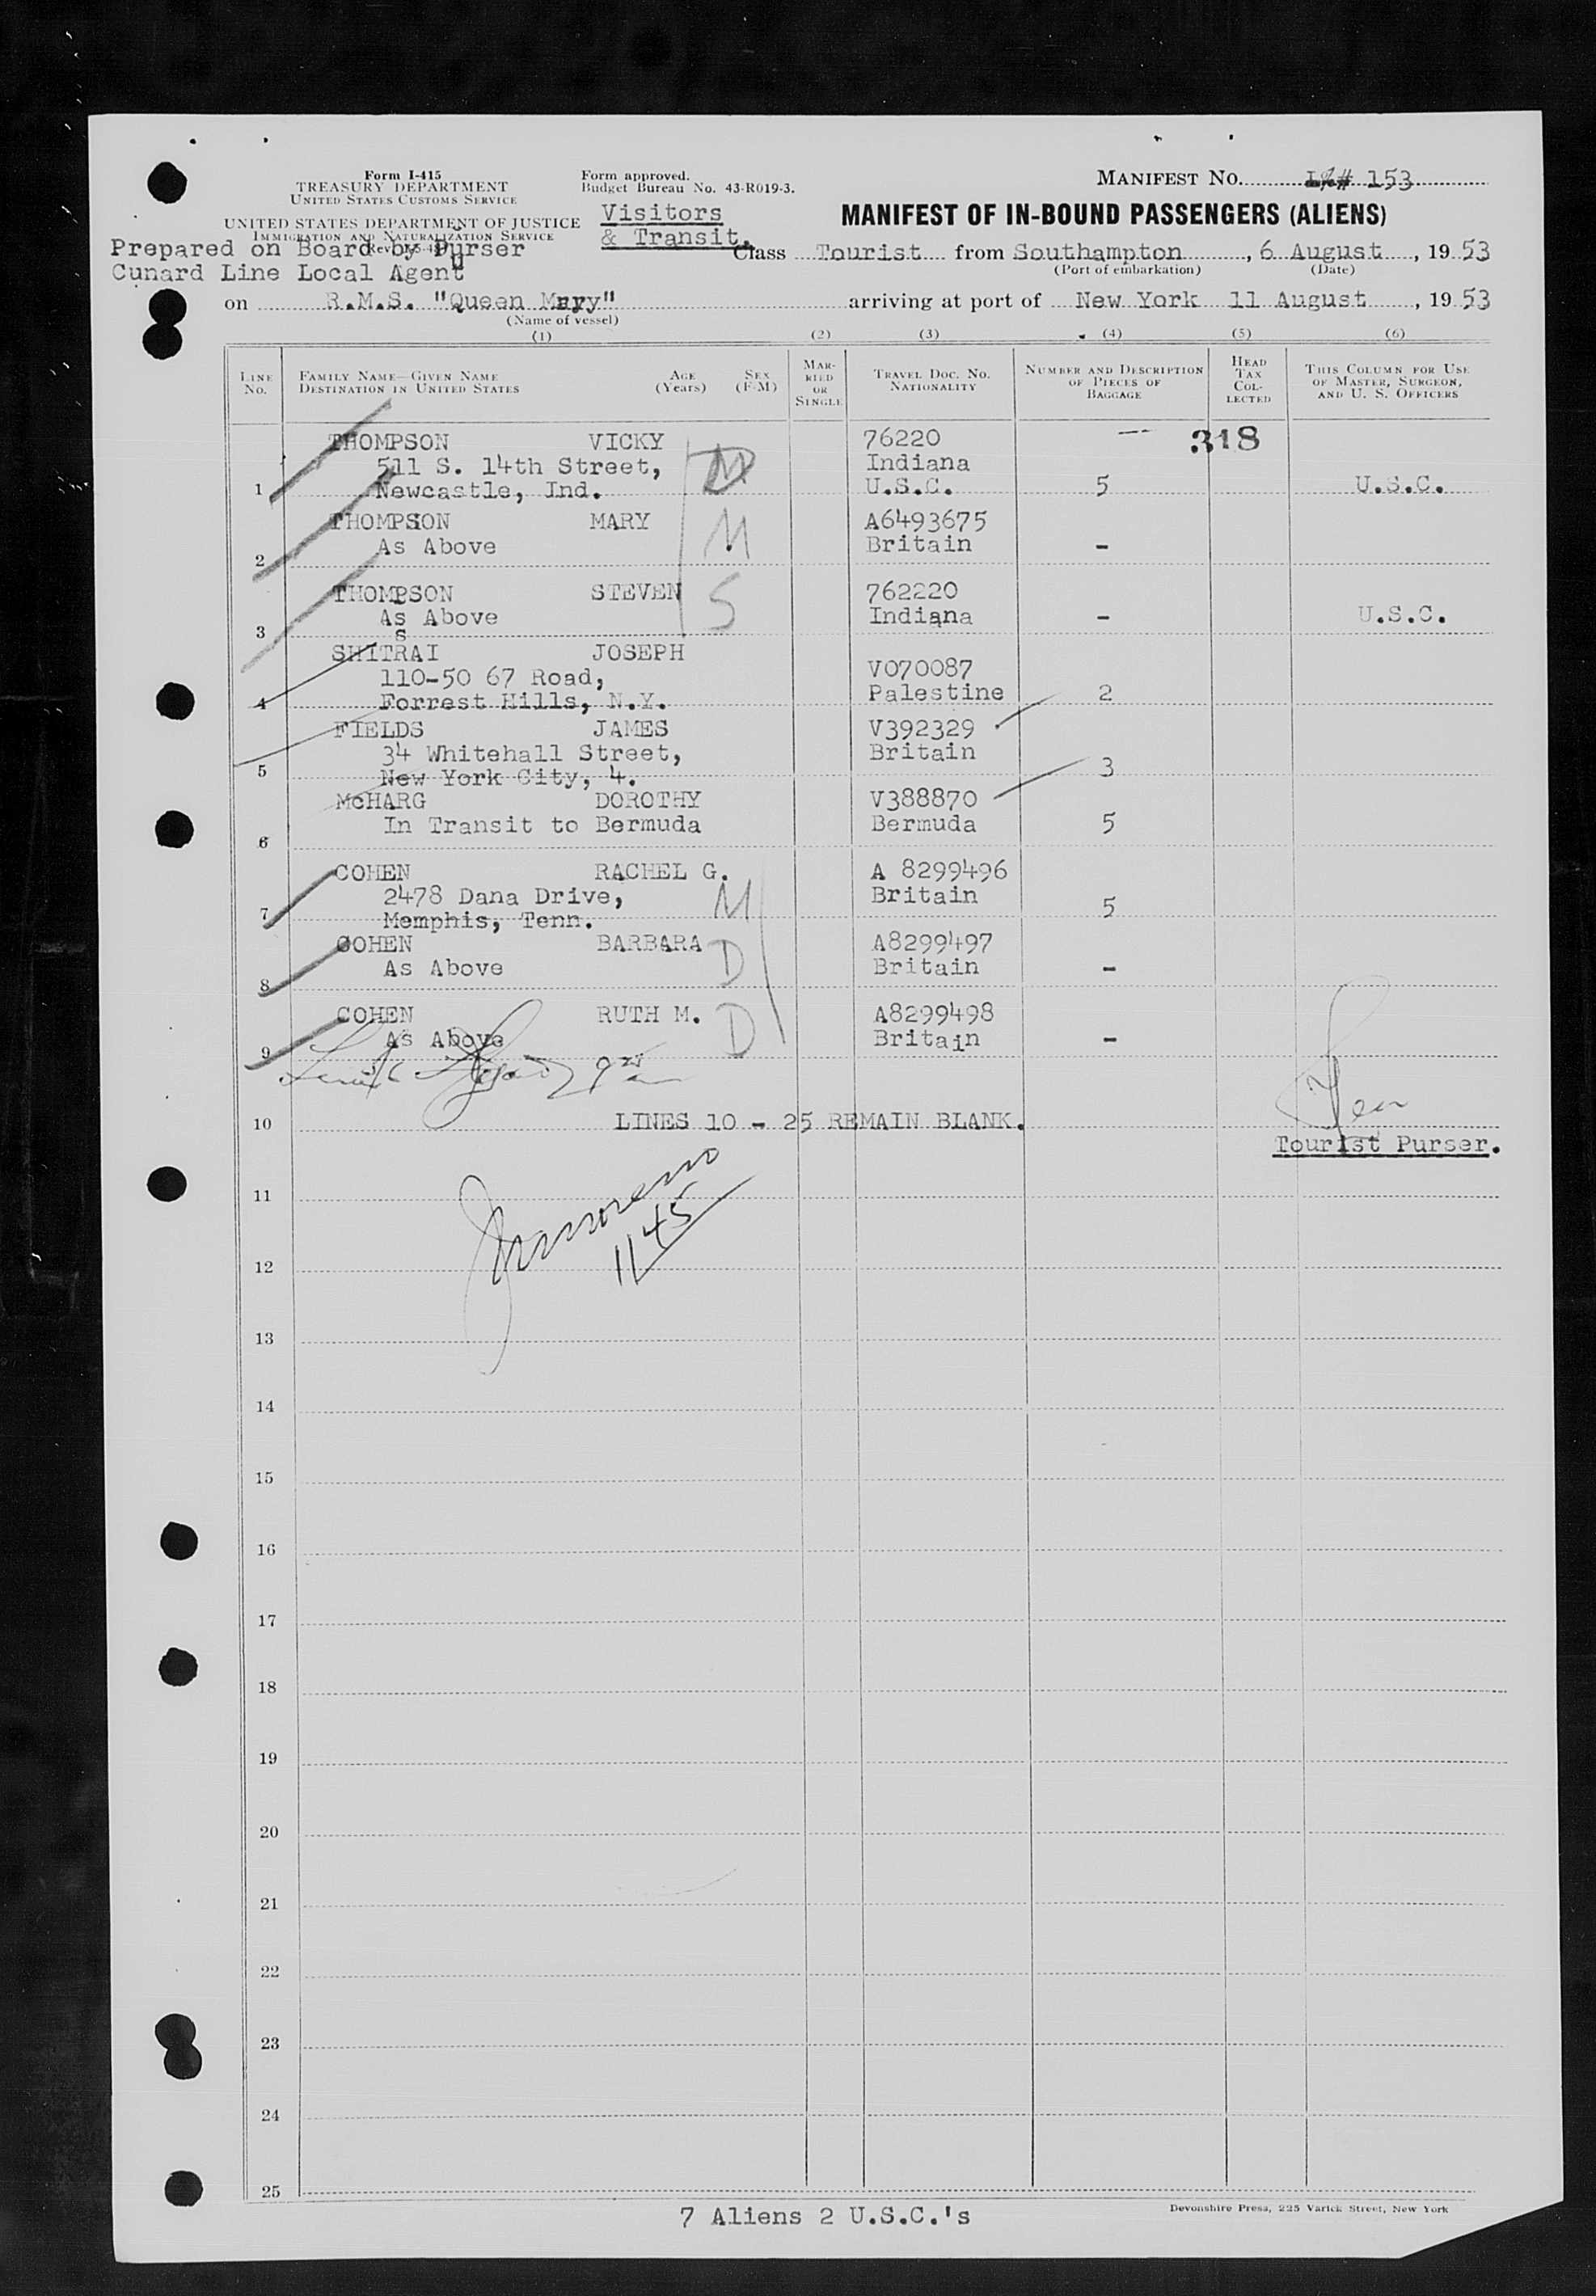 Form I-415
TREASURY DEPARTMENT
UNITED STATES CUSTOMS SERVICE
UNITED STATES DEPARTMENT OF JUSTICE
IMMIGRATION AND NATURALIZATION SERVICE
Form approved.
Budget Bureau No. 43-R019-3.
MANIFEST NO. 153
Visitors
& Transit.
MANIFEST OF IN-BOUND PASSENGERS (ALIENS)
Prepared on Board by Purser
Cunard Line Local Agent
Class Tourist from Southampton, 6 August, 1953
(Port of embarkation) (Date)
on R.M.S. "Queen Mary" arriving at port of New York 11 August, 1953
(Name of vessel)
(1) (2) (3) (4) (5) (6)
LINE NO.
FAMILY NAME—GIVEN NAME
DESTINATION IN UNITED STATES
AGE (Years)
SEX (F-M)
MARRIED OR SINGLE
TRAVEL DOC. NO.
NATIONALITY
NUMBER AND DESCRIPTION OF PIECES OF BAGGAGE
HEAD TAX COLLECTED
THIS COLUMN FOR USE OF MASTER, SURGEON, AND U. S. OFFICERS
THOMPSON VICKY 76220 318
511 S. 14th Street, M Indiana
1 Newcastle, Ind. U.S.C. 5 U.S.C.
THOMPSON MARY M A6493675
As Above Britain -
2
THOMPSON STEVEN S 762220
As Above Indiana - U.S.C.
3
s
SHITRAI JOSEPH
110-50 67 Road, V070087
4 Forrest Hills, N.Y. Palestine 2
FIELDS JAMES V392329
34 Whitehall Street, Britain
5 New York City, 4. 3
McHARG DOROTHY V388870
In Transit to Bermuda Bermuda 5
6
COHEN RACHEL G. A 8299496
2478 Dana Drive, M Britain
7 Memphis, Tenn. 5
COHEN BARBARA D A8299497
As Above Britain -
8
COHEN RUTH M. D A8299498
As Above Britain -
9
10 LINES 10 - 25 REMAIN BLANK.
Tourist Purser.
11
1145
12
13
14
15
16
17
18
19
20
21
22
23
24
25
7 Aliens 2 U.S.C.'s
Devonshire Press, 225 Varick Street, New York